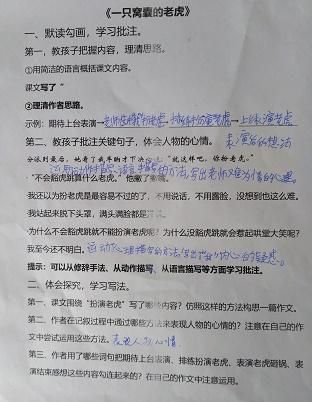 《一只窝囊的老虎》
一、默读勾画，学习批注。
第一，教孩子把握内容，理清思路。
①用简洁的语言概括课文内容。
课文写了“
②理清作者思路。
示例：期待上台表演→老师安排我演老虎→排练时扮演老虎→上台演老虎
第二、教孩子批注关键句子，体会人物的心情。 表演后的想法
分派到最后，他看了我半晌才下决心说：“就这样吧，你扮老虎。”
运用动作描写、语言描写的方法，写出老师又为难的心理。
“不会豁虎跳算什么老虎。”他撇了撇嘴。
我还以为扮老虎是最容易不过的了，不用说话，不用露脸，没想到也这么难。
我站起来脱下头罩，满头满脸都是
为什么不会豁虎跳就不能扮演老虎呢？为什么没豁虎跳就会惹起哄堂大笑呢？
我至今还不明白。运动心理描写的方法，写出我内心的疑惑。
提示：可以从修辞手法、从动作描写、从语言描写等方面学习批注。
二、体会探究，学习写法。
第一、课文围绕“扮演老虎”写了哪些内容？仿照这样的方法构思一篇作文。
第二、作者在记叙过程中通过哪些方法来表现人物的心情的？注意在自己的作
文中尝试运用这些方法。 表达人物心情
第三、作者用了哪些词句把期待上台表演、排练扮演老虎、表演老虎砸锅、表
演结束感想这些内容勾连起来的？在自己的作文中注意运用。